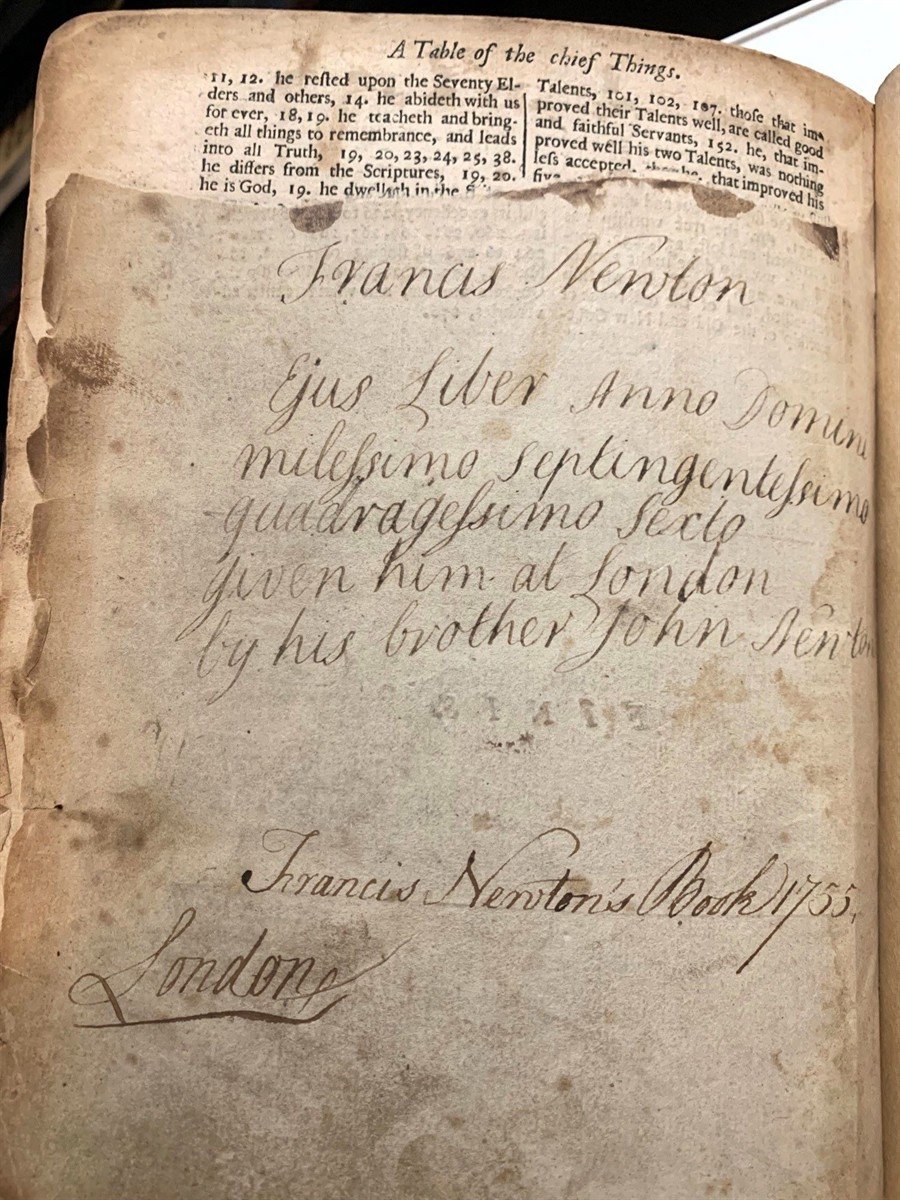 A Table of the chief Things.
11, 12. he reſted upon the Seventy El-
ders and others, 14. he abideth with us
for ever, 18, 19. he teacheth and bring-
eth all things to remembrance, and leads
into all Truth, 19, 20, 23, 24, 25, 38.
he differs from the Scriptures, 19, 20.
he is God, 19. he dwelleth in the
Talents, 101, 102, 107. thoſe that im-
proved their Talents well, are called good
and faithful Servants, 152. he, that im-
proved well his two Talents, was nothing
leſs accepted, than he, that improved his
five
Francis Newton
Ejus Liber Anno Domini
mileſsimo Septingenteſsimo
quadrageſsimo Sexto
given him at London
by his brother John Newton
FINIS
Francis Newton's Book 1755.
London